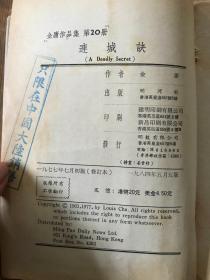 金庸作品集 第20册
連城訣
(A Deadly Secret)
作者 金庸
出版 明河社
印刷
發行
一九七七年七月初版(修訂本) 一九八四年五月五版
版權所有
不准翻印
定價:港幣20元 美金4.50元
只限在中國大陸銷
Copyright © 1963,1977, by Louis Cha. All rights
reserved, which includes the right to reproduce this book
or portions thereof in any form whatsoever.
Ming Pao Daily News Ltd.
651 King's Road, Hong Kong
Post Box No. 4363